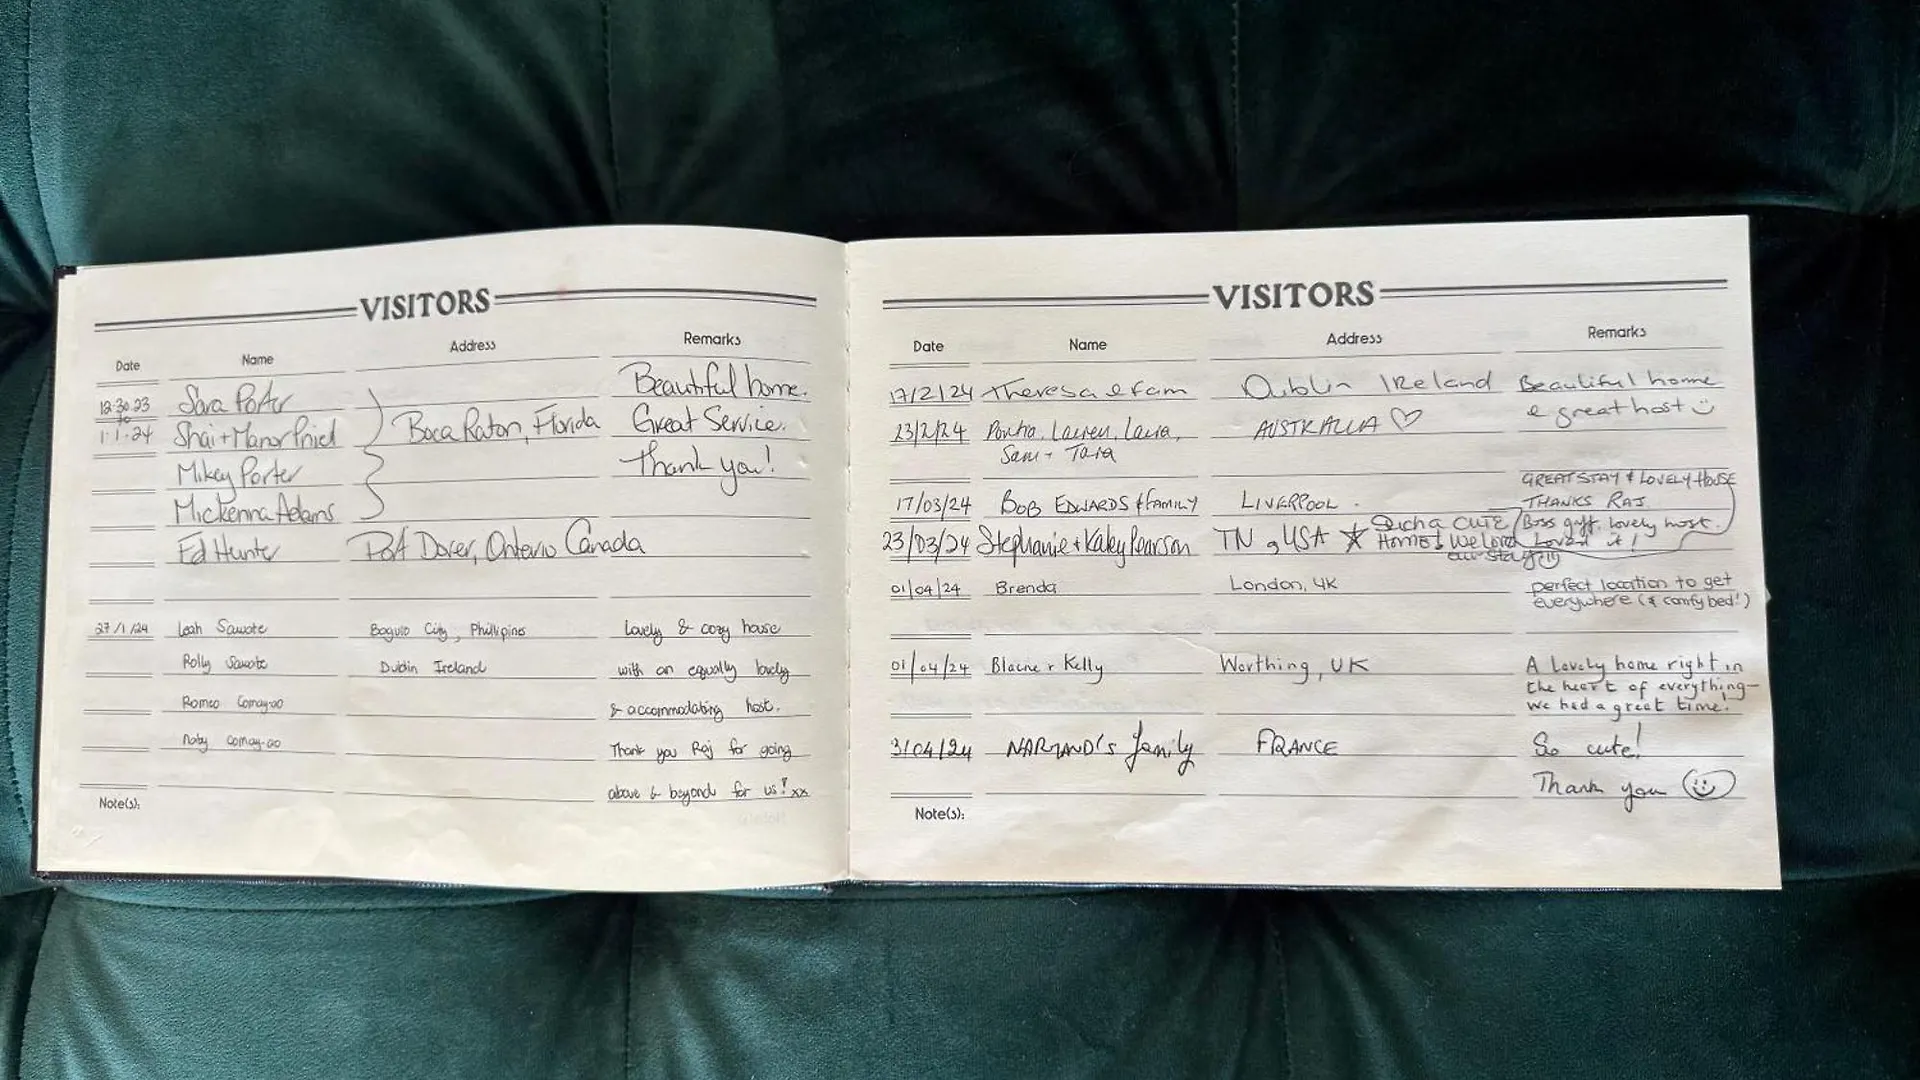 VISITORS
Date Name Address Remarks
12.30.23 Sara Porter Beautiful home.
to
1.1.24 Shai + Manor Boca Raton, Florida Great Service.
Mikey Porter Thank you!
Mickenna Adams
Ed Hunter Port Dover, Ontario Canada
27/1/24 Leah Sawate Baguio City, Phillipines Lovely & cozy house
Rolly Sawate Dublin Ireland with an equally lovely
Romeo Comay-ao & accommodating host.
Noby Comay-ao Thank you Raj for going
above & beyond for us! xx
Note(s):
VISITORS
Date Name Address Remarks
17/2/24 Theresa & fam Dublin Ireland Beautiful home
& great host
23/2/24 Lauren, AUSTRALIA
Sam + Tara
GREAT STAY & LOVELY HOUSE
17/03/24 BOB EDWARDS & FAMILY LIVERPOOL. THANKS RAJ.
Boss gaff, lovely host.
Loved it!
23/03/24 Stephanie + Kaley Pearson TN, USA Such a CUTE
Home! We loved
our stay
01/04/24 Brenda London, UK perfect location to get
everywhere (& comfy bed!)
01/04/24 Blaine + Kelly Worthing, UK A lovely home right in
the heart of everything-
we had a great time!
3/04/24 family FRANCE So cute!
Thank you
Note(s):